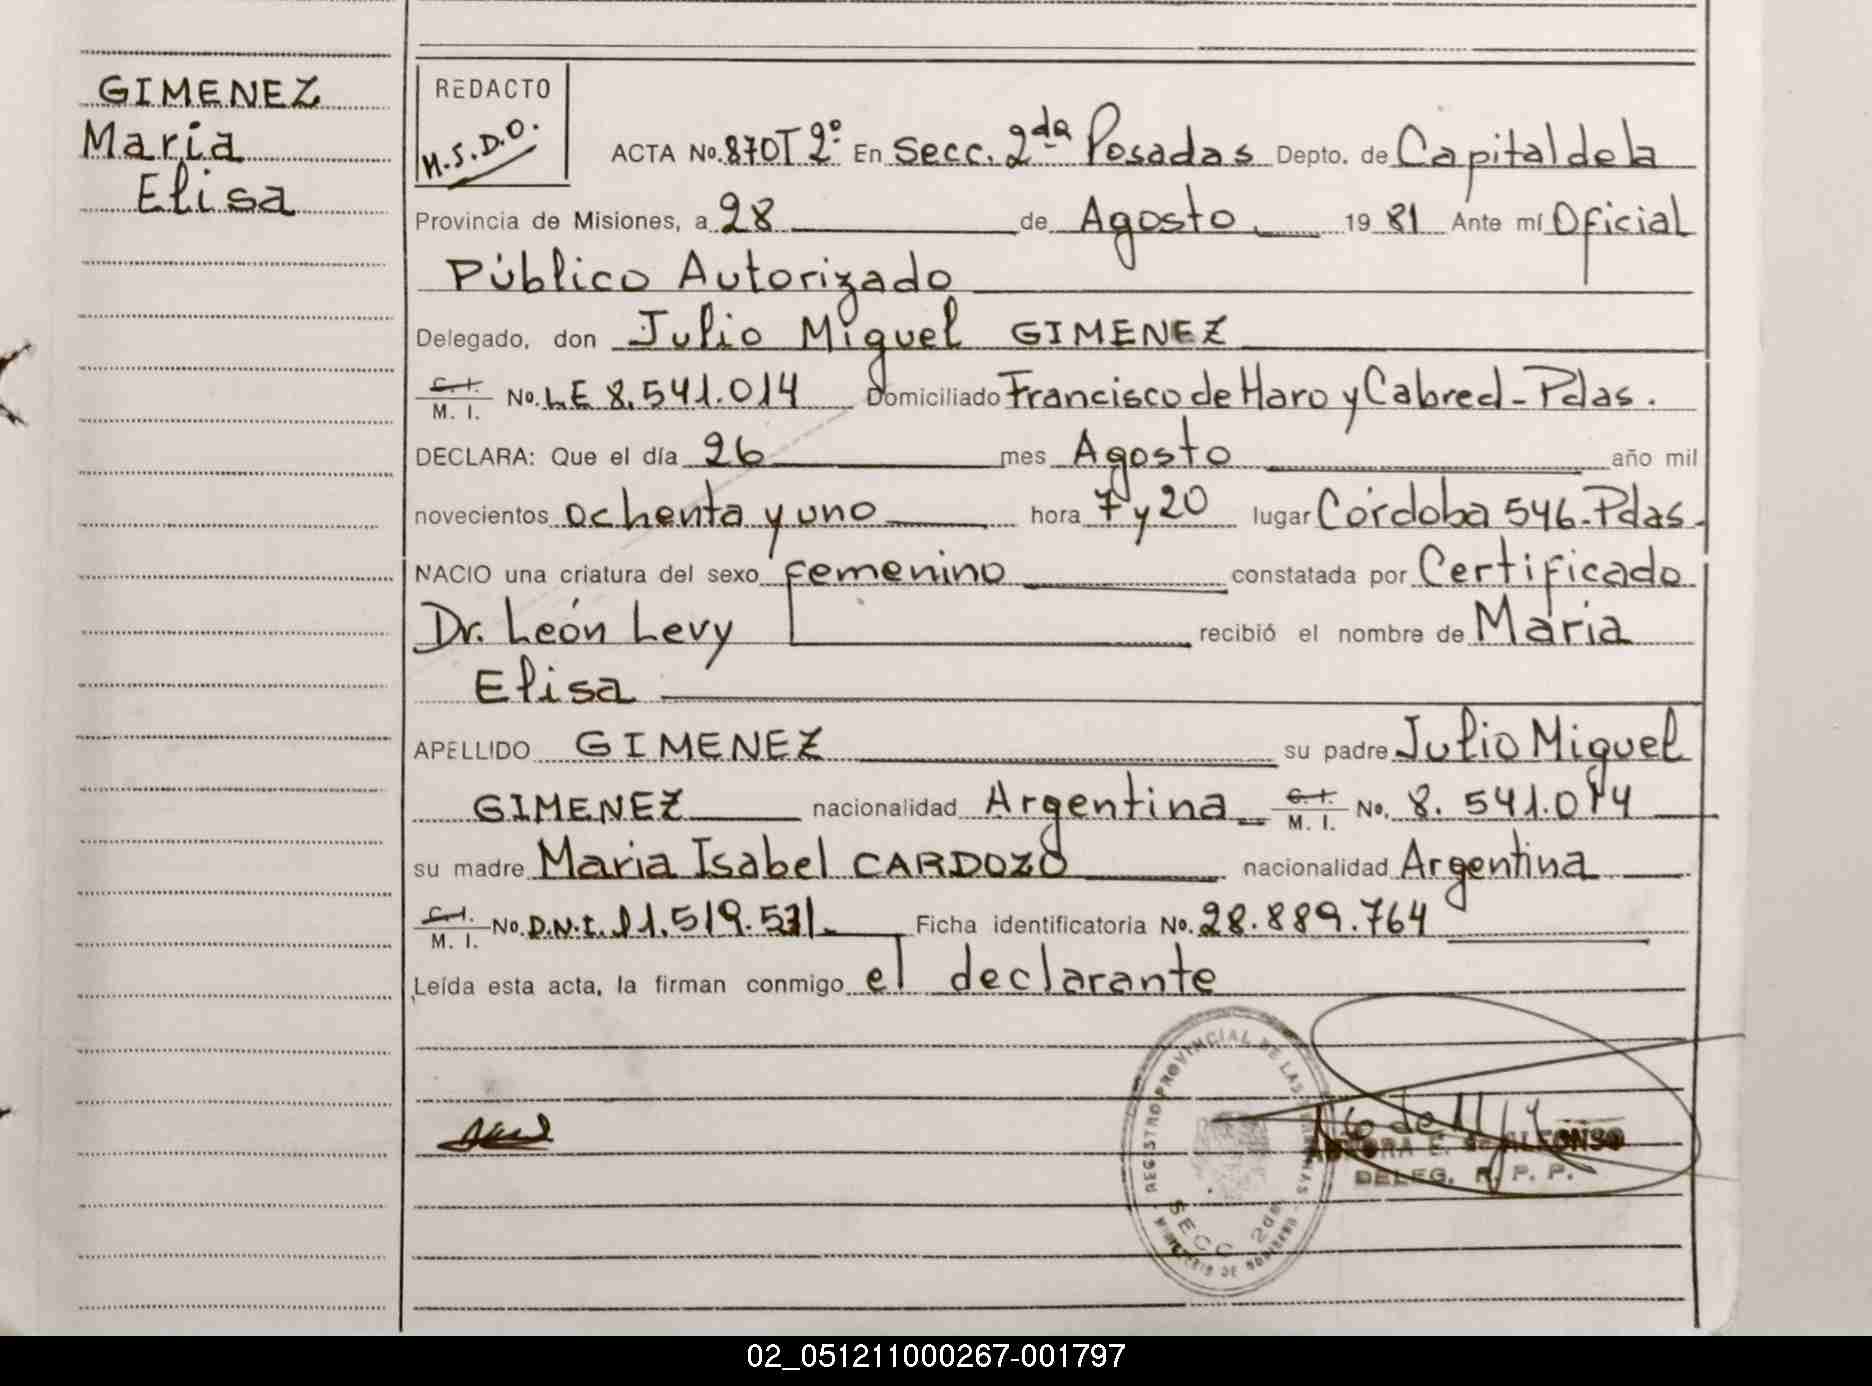 GIMENEZ
Maria
Elisa
REDACTO
M.S.D.O.
ACTA No. 870 T 2º En Secc. 2da Posadas Depto. de Capital de la
Provincia de Misiones, a 28 de Agosto 1981 Ante mí Oficial
Público Autorizado
Delegado, don Julio Miguel GIMENEZ
C.I. M. I. No. LE 8.541.014 Domiciliado Francisco de Haro y Cabred - Pdas.
DECLARA: Que el día 26 mes Agosto año mil
novecientos ochenta y uno hora 7 y 20 lugar Córdoba 546 - Pdas.
NACIO una criatura del sexo femenino constatada por Certificado
Dr. León Levy recibió el nombre de Maria
Elisa
APELLIDO GIMENEZ su padre Julio Miguel
GIMENEZ nacionalidad Argentina C.I. M. I. No. 8.541.014
su madre Maria Isabel CARDOZO nacionalidad Argentina
C.I. M. I. No. D.N.I. 11.519.531. Ficha identificatoria No. 28.889.764
Leída esta acta, la firman conmigo el declarante
REGISTRO PROVINCIAL DE LAS PERSONAS
SECC 2da
MINISTERIO DE GOBIERNO
E. de ALFONSO
DELEG. R. P. P.
02_051211000267-001797